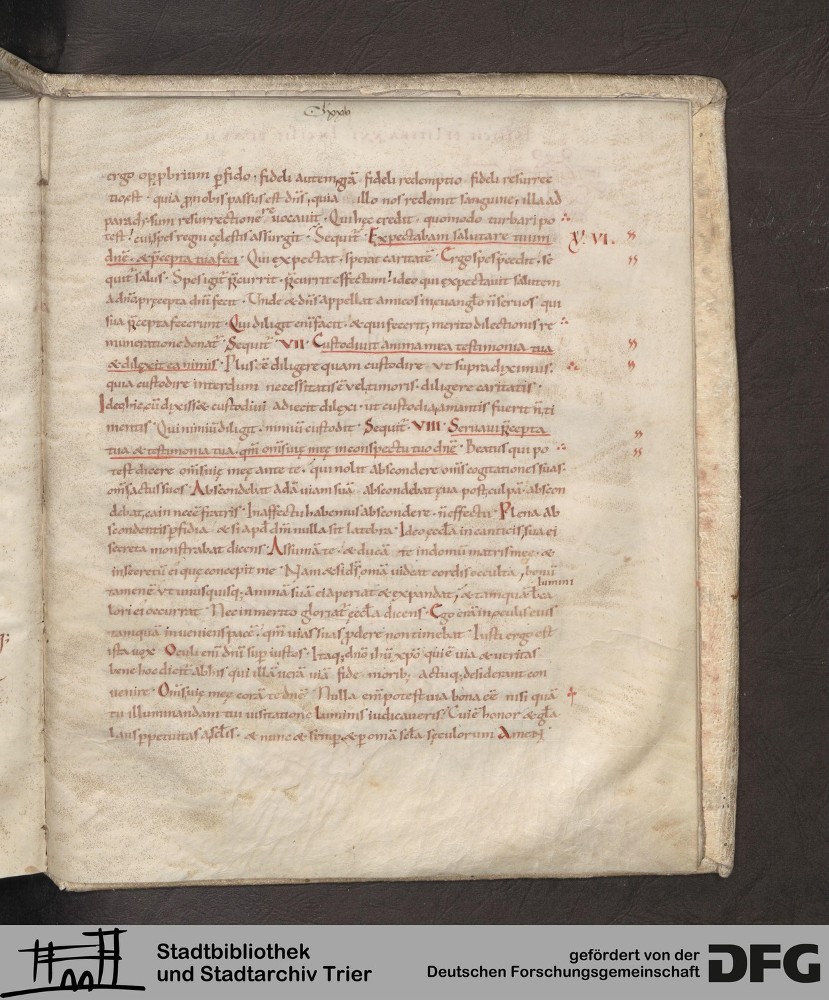 Cxxxv
ergo opprbrium pfido · fideli autem grā · fideli redemptio · fideli resurrec
tio est · quia p nobis passus est dn̄s, quia illo nos redemit sanguine, illa ad
paradysum resurrectione uocauit · Qui hęc credit · quomodo turbari po
test? cui spes regni cęlestis assurgit · Sequit Expectabam salutare tuum V. VI.
dnē · & p̄cepta tua feci · Qui expectat · sperat caritatē · Ergo spes p̄cedit · se
quit salus · Spes igit p̄currit · p̄currit effectum? ideo qui expectauit salutem
a dn̄o p̄cepta dn̄i fecit · Unde & dn̄s appellat amicos in euanglō n̄ seruos · qui
sua p̄cepta fecerunt · Qui diligit enī facit · & qui fecerit, merito dilectionis re
muneratione donat · Sequit VII · Custodiuit anima mea testimonia tua
& dilexit ea nimis · Plus ē diligere quam custodire · ut supra diximus ·
quia custodire interdum necessitatis ē uel timoris · diligere caritatis ·
Ideo hic, cū dixiss& custodiui adiecit dilexi · ut custodia, amantis fuerit n̄ ti
mentis · Qui nimiū diligit · nimiū custodit · Sequit VIII · Seruaui p̄cepta
tua & testimonia tua · qm̄ om̄s uię męę in conspectu tuo dnē · Beatus qui po
test dicere om̄s uię męę ante te · qui nolit abscondere om̄s cogitationes suas ·
om̄s actus suos · Abscondebat adā uiam suā · abscondebat eua post culpā · abscon
debat, cain necē fratris · In affectu habemus abscondere · n̄ effectu · Plena ab
scondentis pfidia · & si apd dm̄ nulla sit latebra · Ideo eccla in canticis, sua ei
secreta monstrabat dicens · Assumā te · & ducā te in domū matris męę · &
in secretū ei quę concepit me · Nam & si dn̄s omā uideat cordis occulta, bonū
lumini
tamen ē ut unusquisq; animā suā ei aperiat & expandat, & tamquā ca
lori ei occurrat · Nec inmerito gloriat eccla dicens · Ego erā in oculis eius
tamquā inueniens pacē · qm̄ uias suas pdere non timebat · Iusti ergo est
ista uox · Oculi enī dn̄i sup iustos · Itaq; dn̄o ihū xpō qui ē uia & ueritas
bene hoc dicit ab his qui illā uerā uiā fide · morib; actuq; desiderant con
uenire · Om̄s uię męę corā te dnē · Nulla enī potest uia bona eē nisi quā
tu illuminandam tui uisitatione luminis iudicaueris · Cui ē honor & glā
laus ppetuitas a sclis · & nunc & semp & p omā scla sęculorum Amen ·
Stadtbibliothek
und Stadtarchiv Trier
gefördert von der
Deutschen Forschungsgemeinschaft
DFG